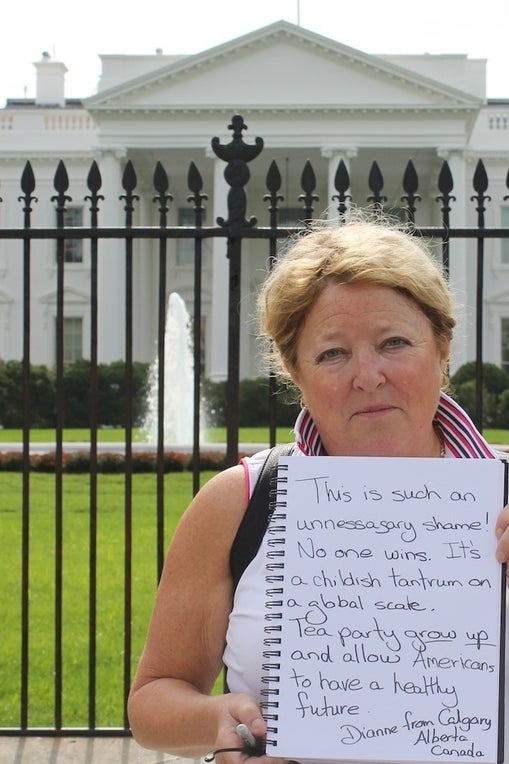 This is such an
unnessasary shame!
No one wins. It's
a childish tantrum on
a global scale.
Tea party grow up
and allow Americans
to have a healthy
future.
Dianne from Calgary
Alberta
Canada